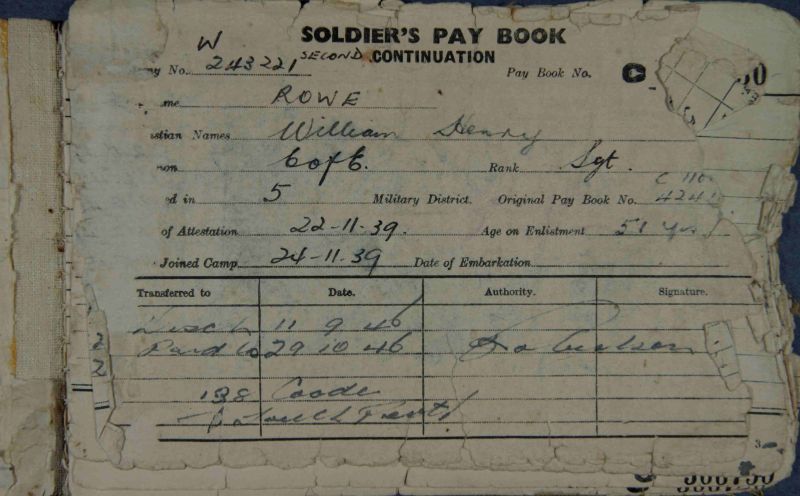 SOLDIER'S PAY BOOK
SECOND CONTINUATION
W
ny No. 243221 Pay Book No. C 30
me ROWE
stian Names William Henry
ion C of E. Rank Sgt.
ed in 5 Military District. Original Pay Book No. C 110 4241
of Attestation 22-11-39. Age on Enlistment 51 yrs
Joined Camp 24-11-39 Date of Embarkation
Transferred to Date. Authority. Signature.
Disch 11 9 46
Paid to 29 10 46
138 Coode
St South Perth
2
2
3
C 300730